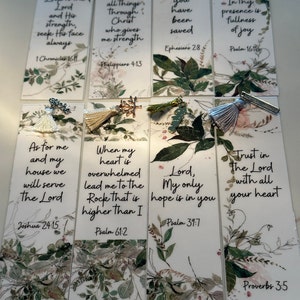 Lord and
His strength,
seek His face
always
1 Chronicles 16:11
all things
through
Christ
who gives
me strength
Philippians 4:13
you
have
been
saved
Ephesians 2:8
In thy
presence is
fullness
of joy
Psalm 16:11
As for me
and my
house we
will serve
the Lord
Joshua 24:15
When my
heart is
overwhelmed
lead me to the
Rock that is
higher than I
Psalm 61:2
Lord,
My only
hope is in you
Psalm 39:7
Trust in
the Lord
with all
your heart
Proverbs 3:5